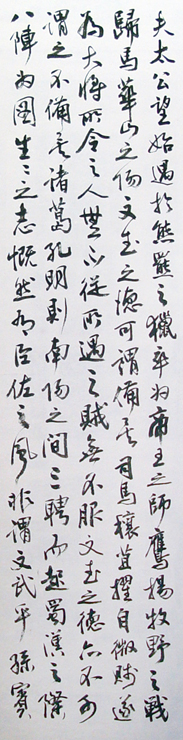 夫太公望始遇於熊羆之獵卒為帝王之師鷹揚牧野之戰
歸馬華山之陽文武之德可謂備矣司馬穰苴擢自微賤遂
為大將所令之人無不從所遇之賊無不服文武之德亦不可
謂之不備矣諸葛孔明到南陽之間三聘而起蜀漢之僚
八陣為圖生之志慨然有臣佐之風非謂文武乎孫賓